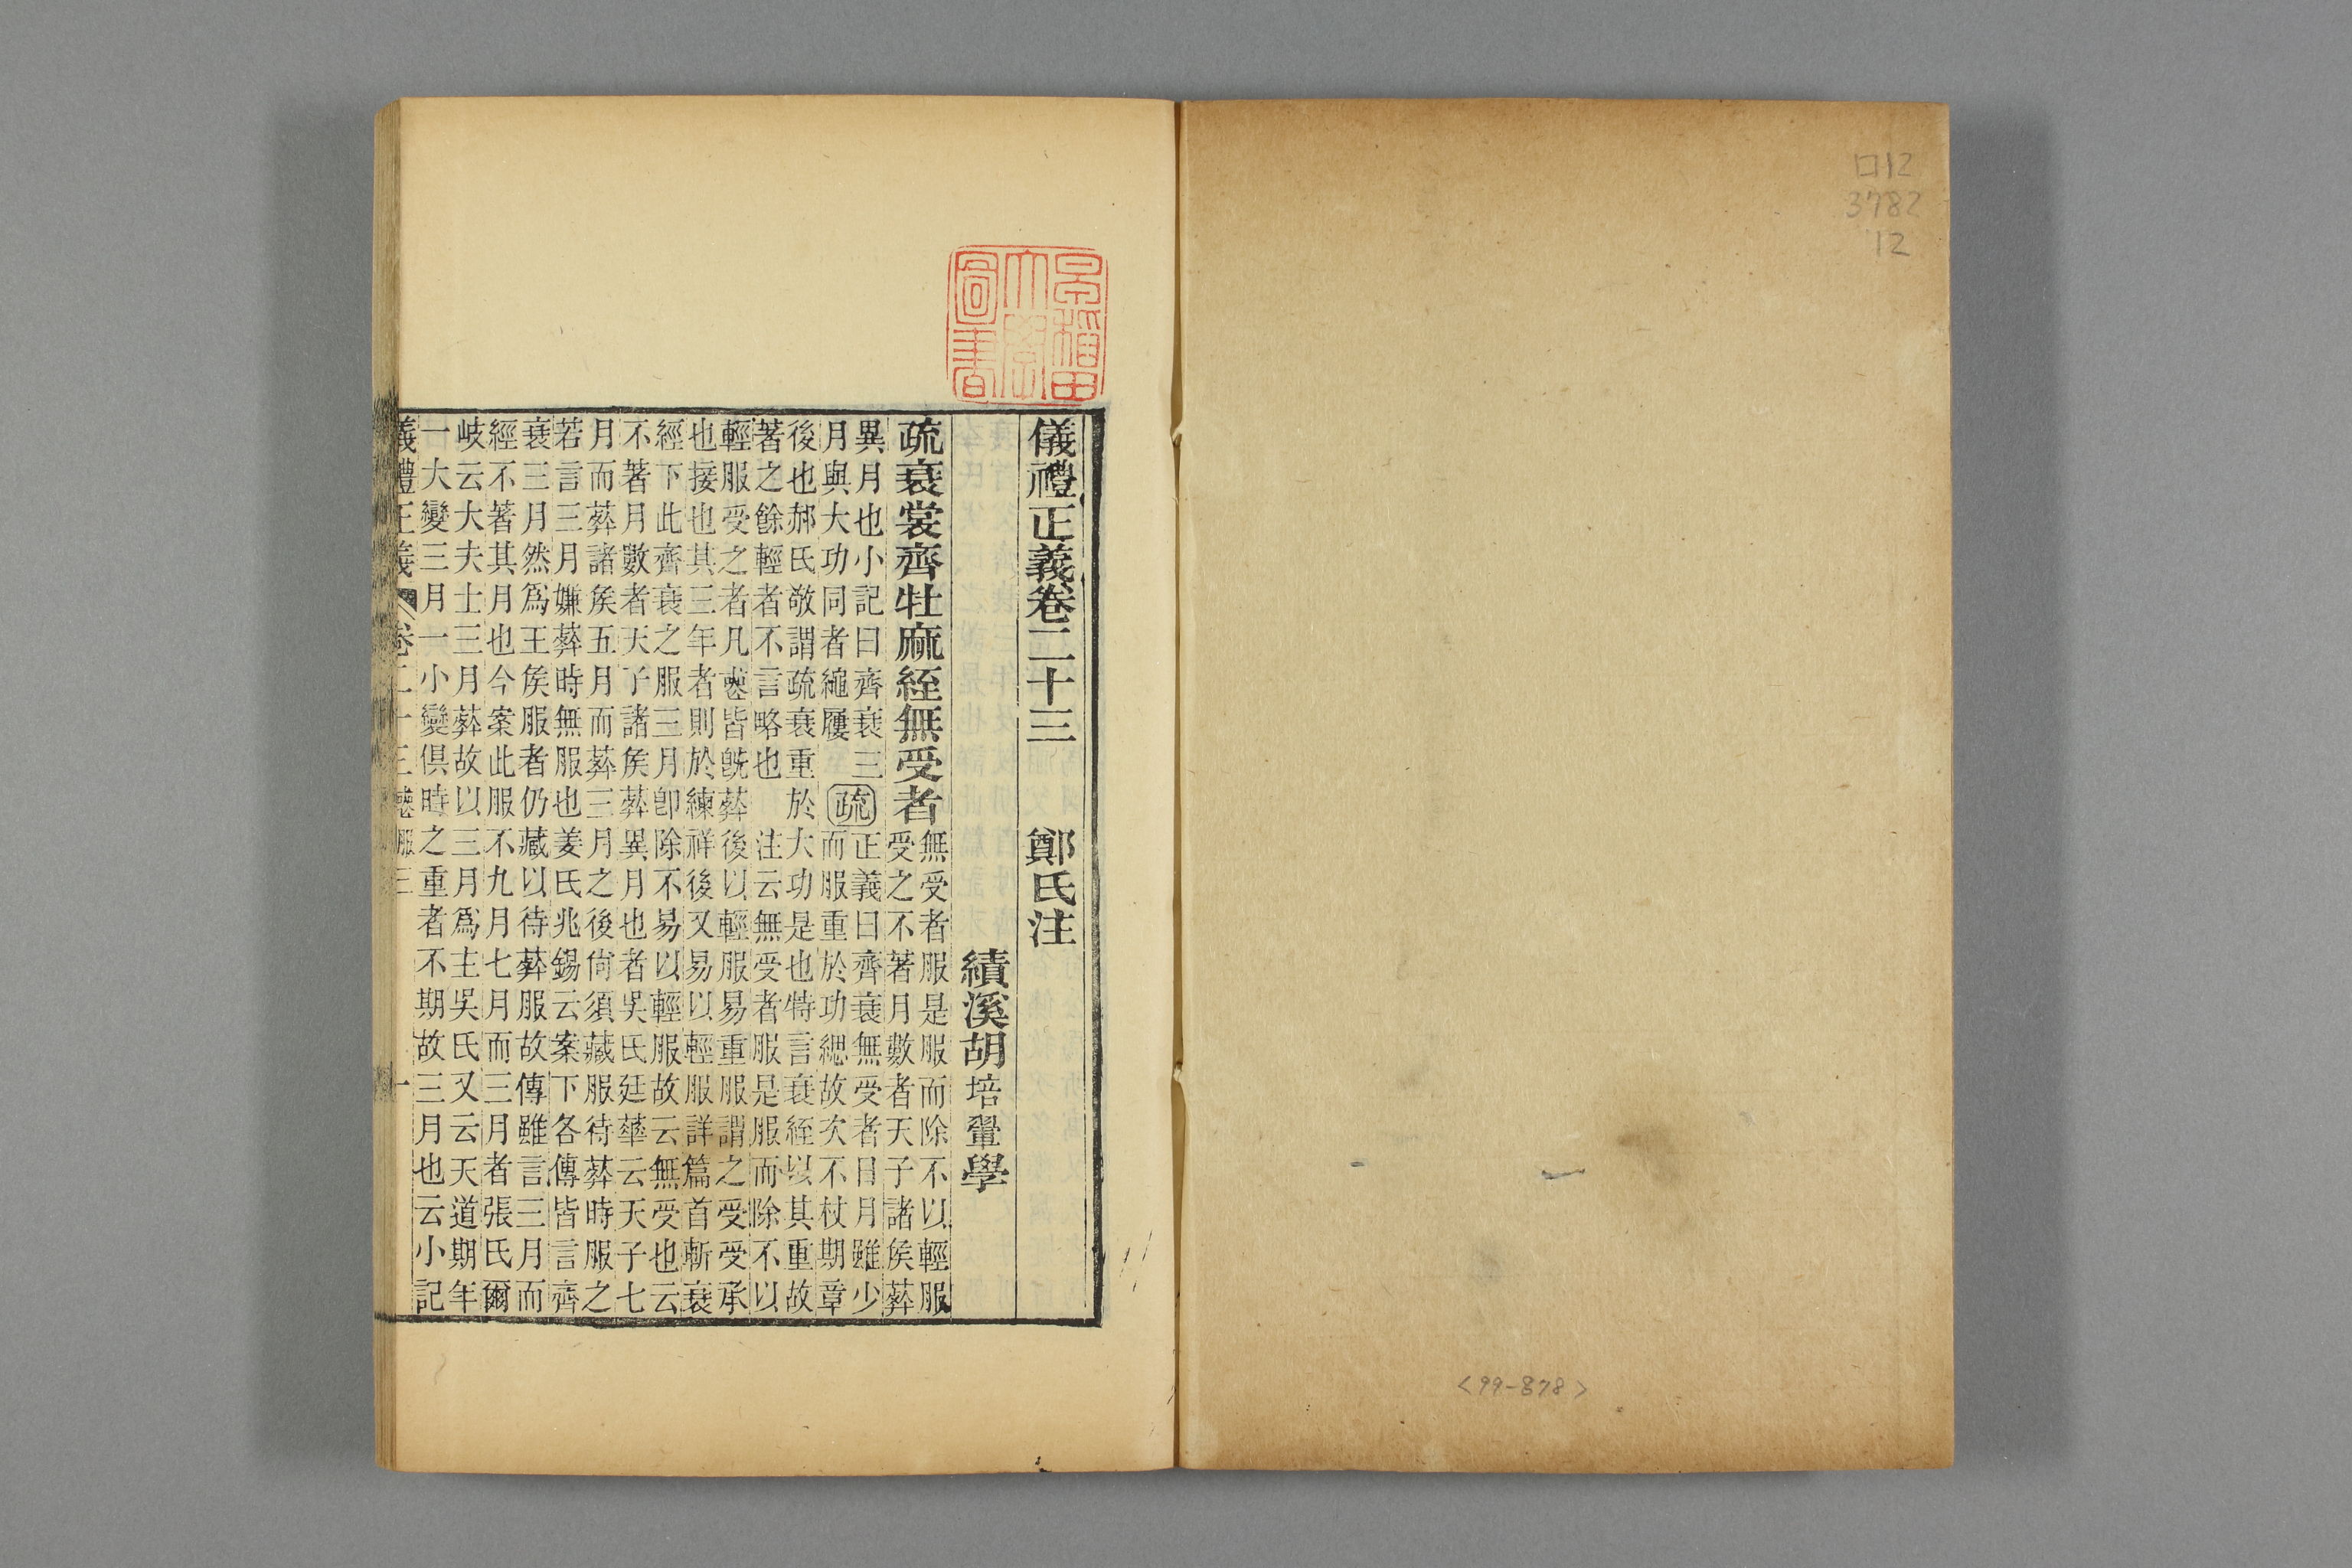 口12
3782
12
<99-878>
早稲田
大學
圖書
儀禮正義卷二十三 鄭氏注
績溪胡培翬學
疏衰裳齊牡麻絰無受者
無受者服是服而除不以輕服
受之不著月數者天子諸矦葬
異月也小記曰齊衰三
月與大功同者繩屨
疏
正義曰齊衰無受者日月雖少
而服重於功緦故次不杖期章
後也郝氏敬謂疏衰重於大功是也特言衰絰以其重故
著之餘輕者不言略也 注云無受者服是服而除不以
輕服受之者凡䘮皆旣葬後以輕服易重服謂之受受承
也接也其三年者則於練祥後又易以輕服詳篇首斬衰
經下此齊衰之服三月卽除不易以輕服故云無受也云
不著月數者天子諸矦葬異月也者吳氏廷華云天子七
月而葬諸矦五月而葬三月之後尙須藏服待葬時服之
若言三月嫌葬時無服也姜氏兆錫云案下各傳皆言齊
衰三月然爲王矦服者仍藏以待葬服故傳雖言三月而
經不著其月也今案此服不九月七月而三月者張氏爾
岐云大夫士三月葬故以三月爲主吳氏又云天道期年
一大變三月一小變俱時之重者不期故三月也云小記
義禮正義 卷二十三 䘮服三 一